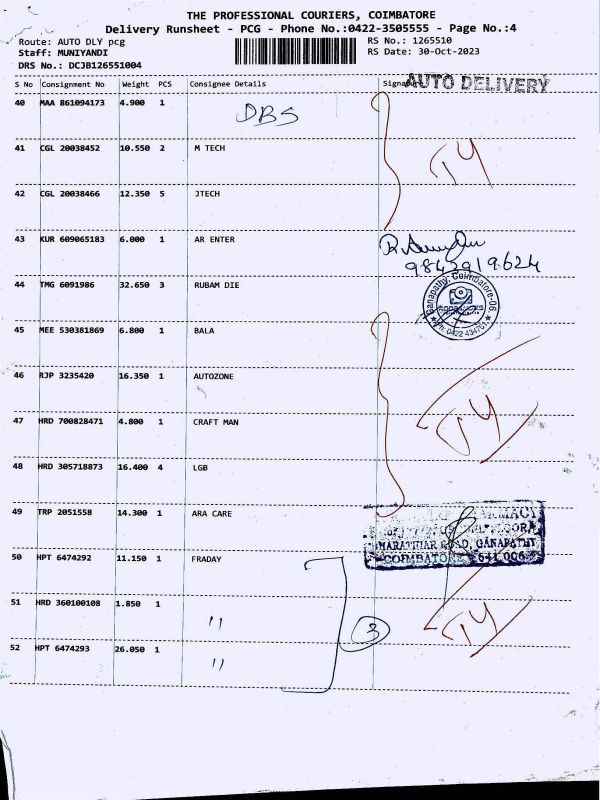 THE PROFESSIONAL COURIERS, COIMBATORE
Delivery Runsheet - PCG - Phone No.:0422-3505555 - Page No.:4
Route: AUTO DLY pcg RS No.: 1265510
Staff: MUNIYANDI RS Date: 30-Oct-2023
DRS No.: DCJB126551004
AUTO DELIVERY
S No Consignment No Weight PCS Consignee Details
40 MAA 861094173 4.900 1 DBS
41 CGL 20038452 10.550 2 M TECH
42 CGL 20038466 12.350 5 JTECH
43 KUR 609065183 6.000 1 AR ENTER
9842919624
44 TMG 6091986 32.650 3 RUBAM DIE
Ganapathy, Coimbatore-06
45 MEE 530381869 6.800 1 BALA
46 RJP 3235420 16.350 1 AUTOZONE
47 HRD 700828471 4.800 1 CRAFT MAN
48 HRD 305718873 16.400 4 LGB
49 TRP 2051558 14.300 1 ARA CARE
ROAD, GANAPATHY
COIMBATORE 641 006
50 HPT 6474292 11.150 1 FRADAY
51 HRD 360100108 1.850 1 "
3
52 HPT 6474293 26.050 1 "